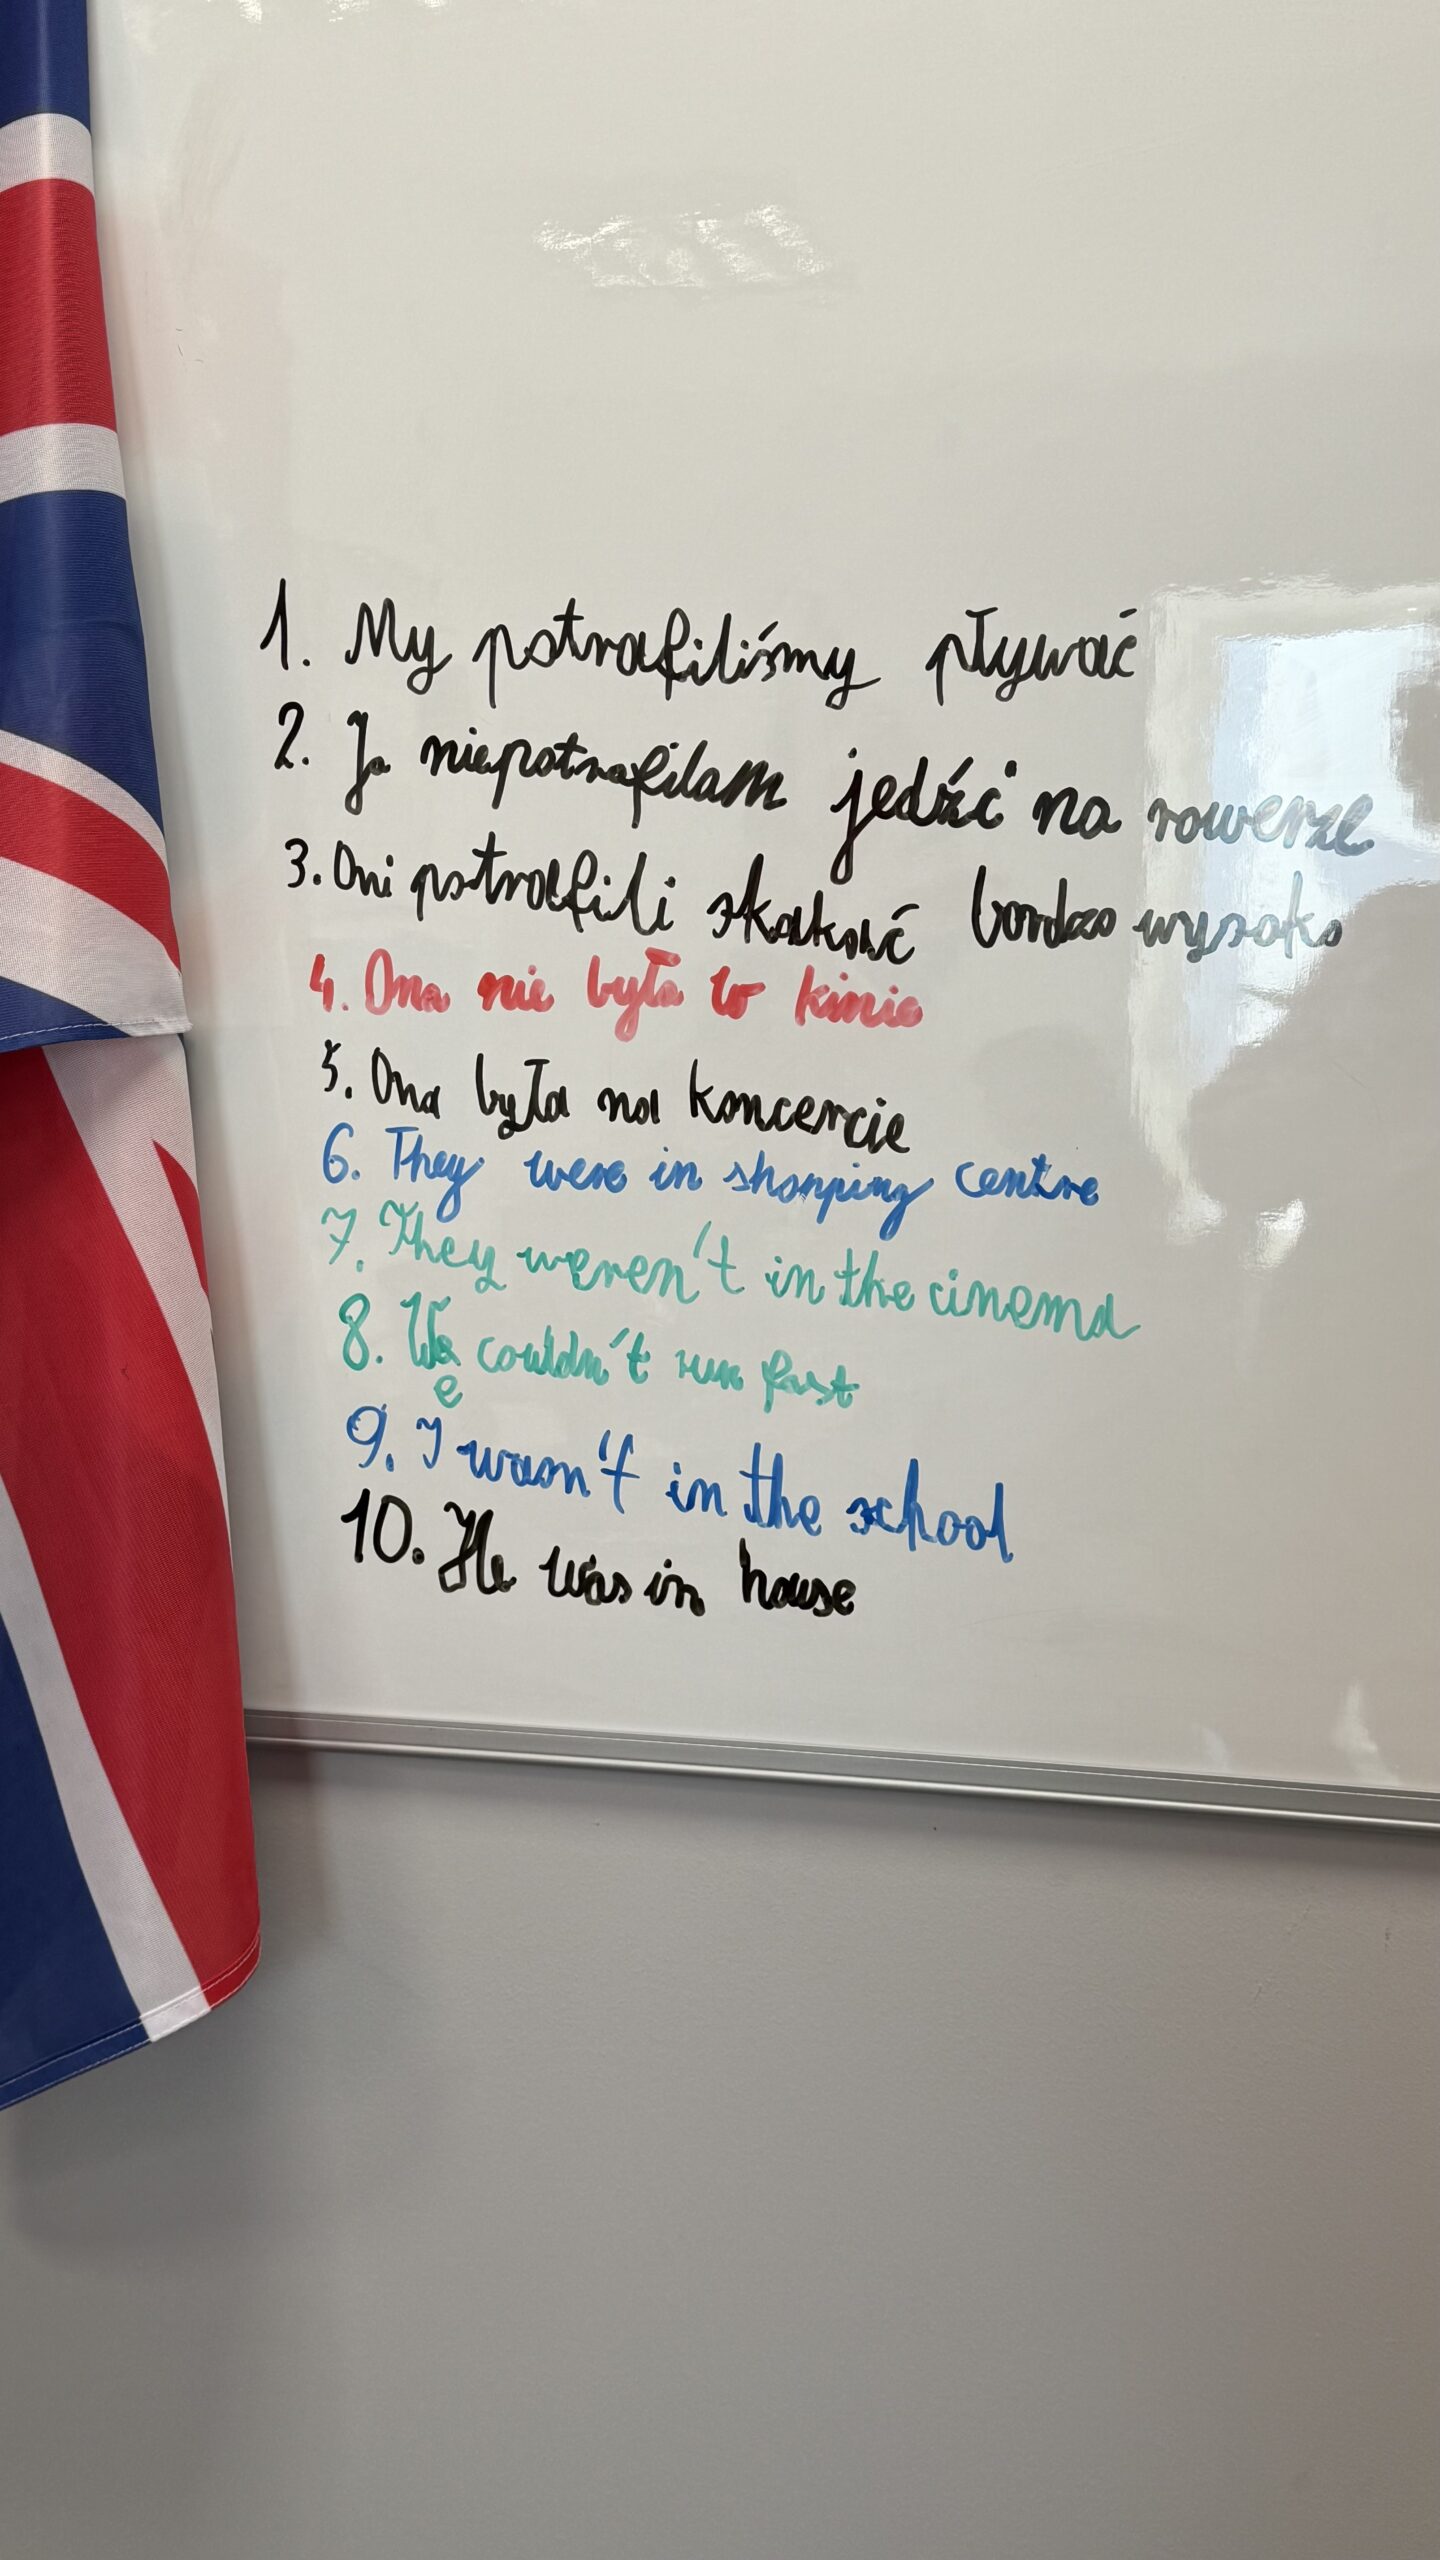 1. My potrafiliśmy pływać
2. Ja niepotrafilam jedźić na rowerze
3. Oni potrafili skakać bardzo wysoko
4. Ona nie była w kinie
5. Ona była na koncercie
6. They were in shopping centre
7. They weren't in the cinema
8. We couldn't run fast
e
9. I wasn't in the school
10. He was in house